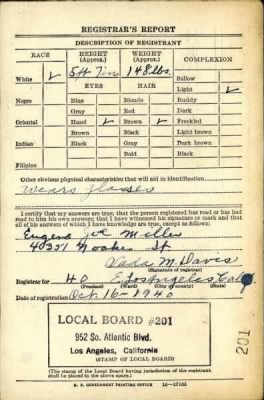 REGISTRAR'S REPORT
DESCRIPTION OF REGISTRANT
RACE HEIGHT (Approx.) WEIGHT (Approx.) COMPLEXION
5 ft 7 in 148 lbs. Sallow
White ✓ EYES HAIR Light ✓
Negro Blue Blonde Ruddy
Gray Red Dark
Oriental Hazel ✓ Brown ✓ Freckled
Brown Black Light brown
Indian Black Gray Dark brown
Bald Black
Filipino
Other obvious physical characteristics that will aid in identification
Wears glasses
I certify that my answers are true; that the person registered has read or has had
read to him his own answers; that I have witnessed his signature or mark and that
all of his answers of which I have knowledge are true, except as follows:
Eugene Miller
St
M. Davis
(Signature of registrar)
Registrar for 40 E. Los Angeles Cal
(Precinct) (Ward) (City or county) (State)
Date of registration Oct 16-1940
LOCAL BOARD #201
952 So. Atlantic Blvd.
Los Angeles, California
(STAMP OF LOCAL BOARD)
201
(The stamp of the Local Board having jurisdiction of the registrant
shall be placed in the above space.)
U. S. GOVERNMENT PRINTING OFFICE 16—17105